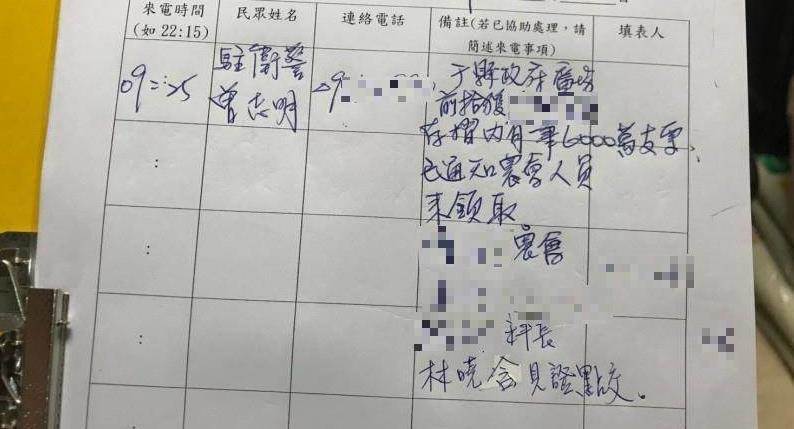 來電時間
(如 22:15)
民眾姓名
連絡電話
備註(若已協助處理，請
簡述來電事項)
填表人
09::25
駐衛警
曾志明
09
于縣政府廣場
前拾獲
存摺內有一筆6000萬支票、
已通知農會人員
來領取。
農會
科長
林曉含見證點交.
:
:
: